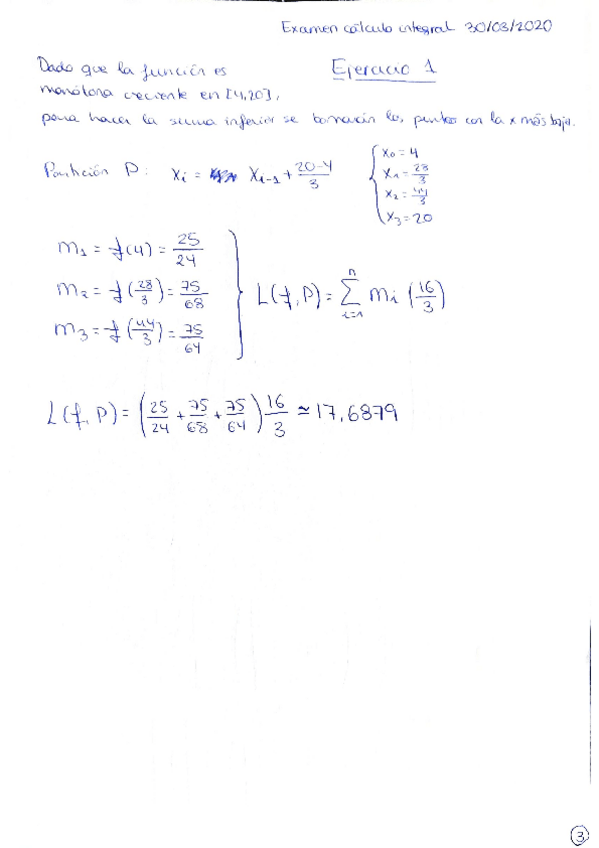 Examen cálculo integral 30/03/2020
Dado que la función es
Ejercicio 1
monótona creciente en [4,20],
para hacer la suma inferior se tomarán los puntos con la x más baja.
Partición P: xi = xi-1 + 20-4/3
x0 = 4
x1 = 28/3
x2 = 44/3
x3 = 20
m1 = f(4) = 25/24
m2 = f(28/3) = 75/68
m3 = f(44/3) = 75/64
L(f,P) = ∑ n i=1 mi (16/3)
L(f,P) = (25/24 + 75/68 + 75/64) 16/3 ≃ 17,6879
3